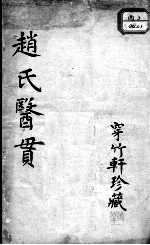 趙氏醫貫
穿竹軒珍藏